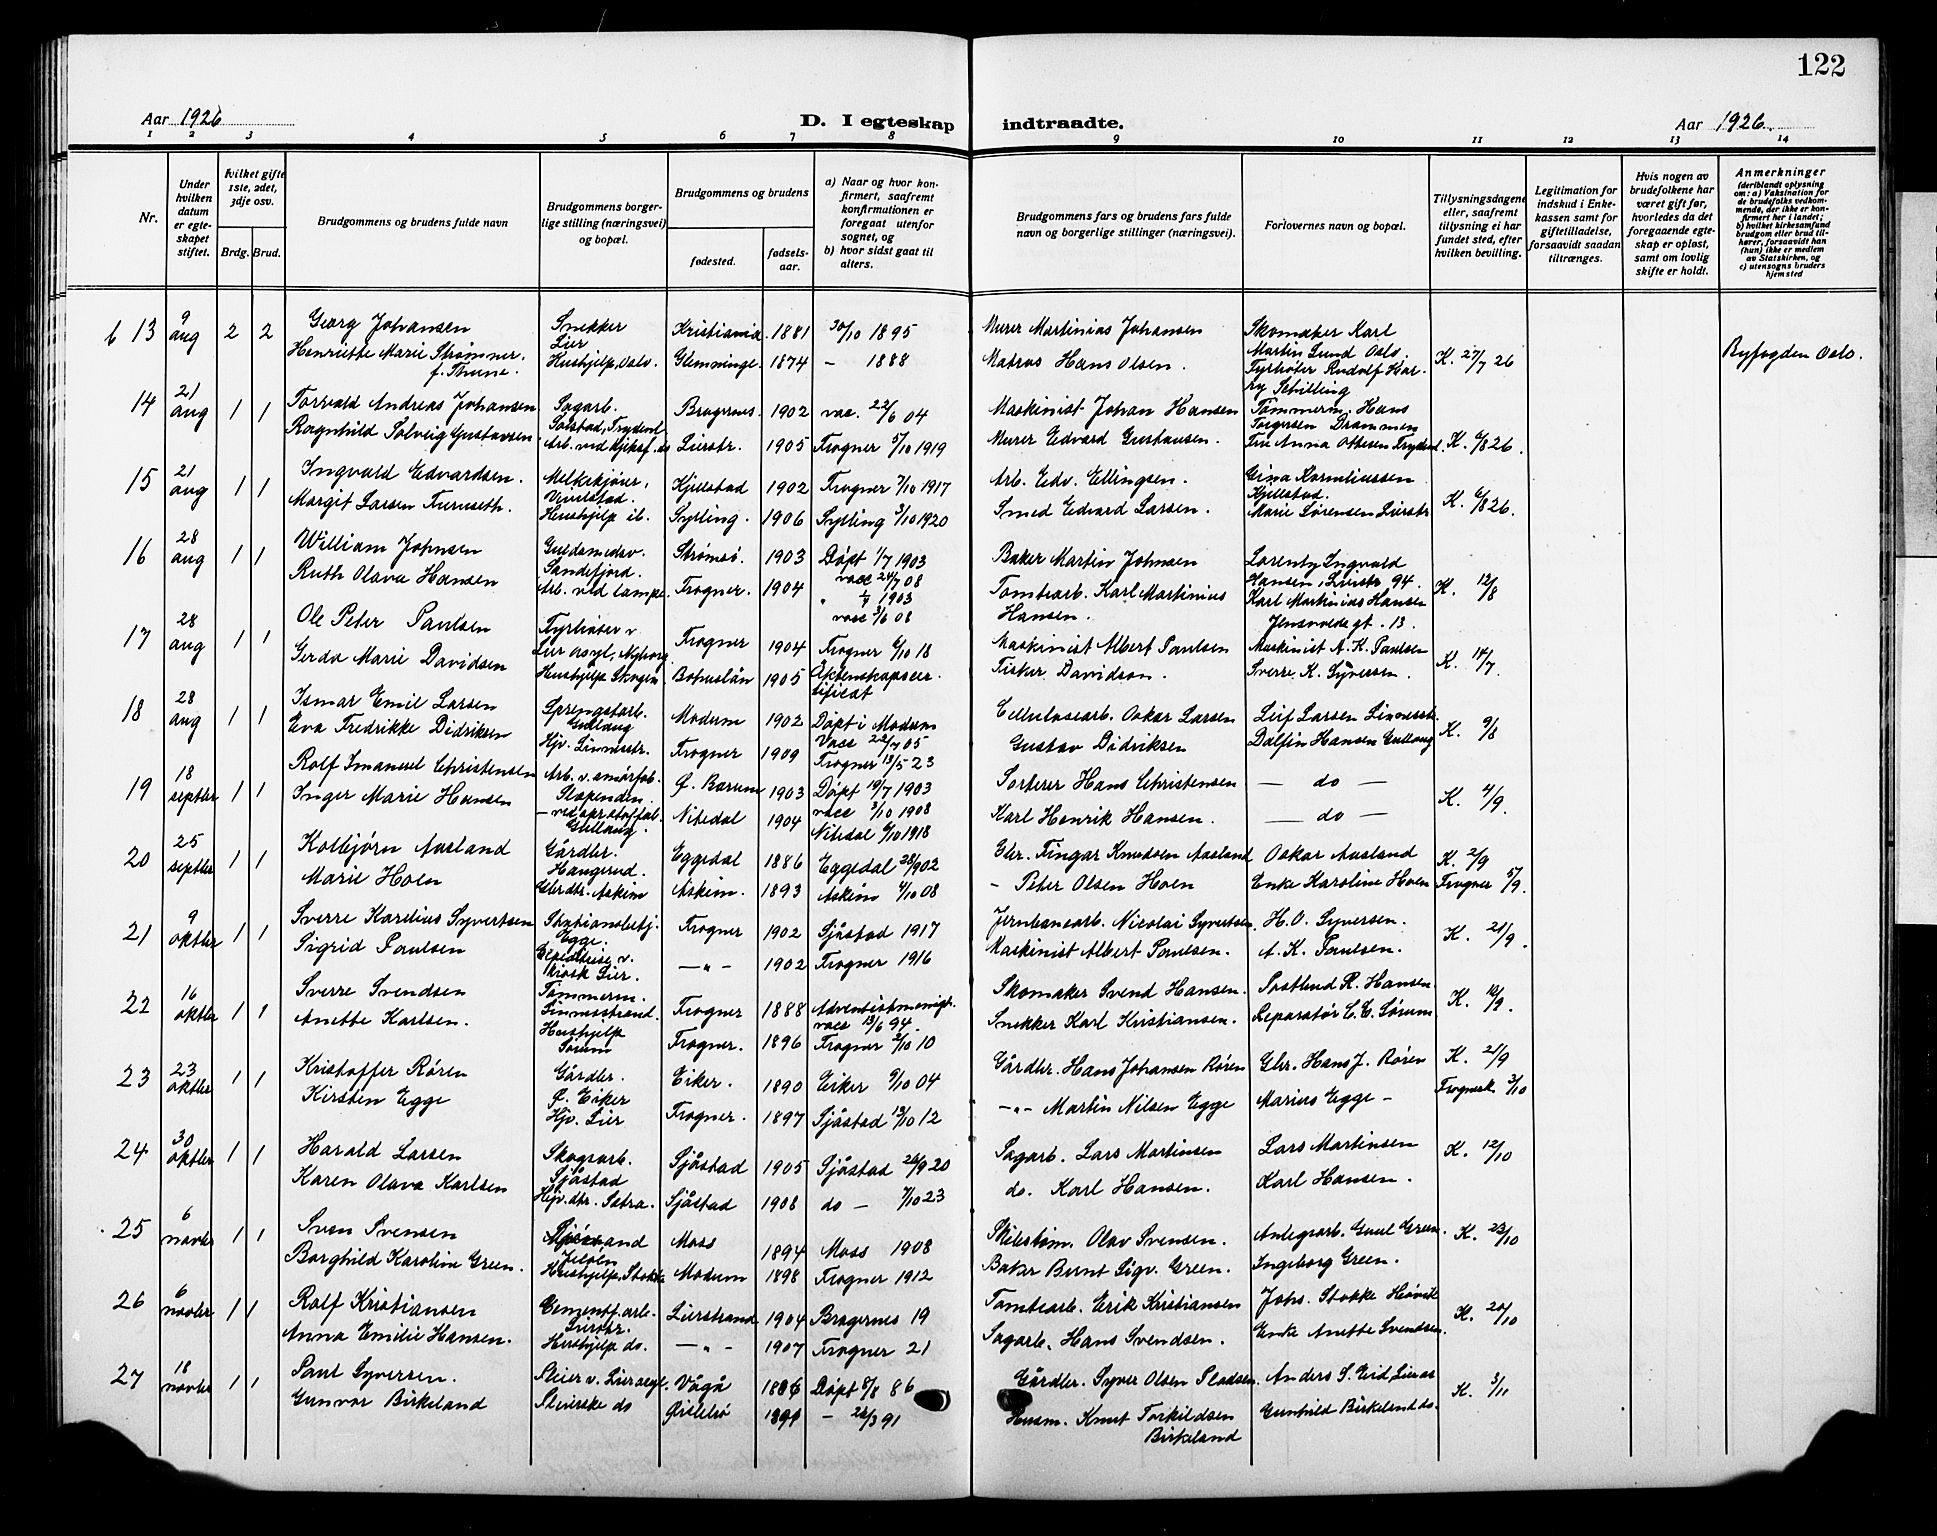 122
Aar 1926
D. I egteskap indtraadte.
Aar 1926.
1 2 3 4 5 6 7 8 9 10 11 12 13 14
Nr.
Under hvilken datum er egteskapet stiftet.
hvilket gifte 1ste, 2det, 3dje osv.
Brdg. Brud.
Brudgommens og brudens fulde navn
Brudgommens borgerlige stilling (næringsvei) og bopæl.
Brudgommens og brudens
fødested.
fødselsaar.
a) Naar og hvor konfirmert, saafremt konfirmationen er foregaat utenfor sognet, og
b) hvor sidst gaat til alters.
Brudgommens fars og brudens fars fulde navn og borgerlige stillinger (næringsvei).
Forlovernes navn og bopæl.
Tillysningsdagene eller, saafremt tillysning ei har fundet sted, efter hvilken bevilling.
Legitimation for indskud i Enkekassen samt for giftetilladelse, forsaavidt saadan tiltrænges.
Hvis nogen av brudefolkene har været gift før, hvorledes da det foregaaende egteskap er opløst, samt om lovlig skifte er holdt.
Anmerkninger
(deriblandt oplysning om: a) Vaksination for de brudefolks vedkommende, der ikke er konfirmert her i landet; b) hvilket kirkesamfund brudgom eller brud tilhører, forsaavidt han (hun) ikke er medlem av Statskirken, og c) utensogns bruders hjemsted
b 13 9 aug 2 2 Georg Johansen Snekker Lier Kristiania 1881 30/10 1895 Murer Martinius Johansen Skomaker Karl Martin Lund Oslo. K. 27/7 26 Byfogden Oslo.
Henriette Marie Strømner. f. Thune. Hushjelp, Oslo. Glemminge 1874 – 1888 Matros Hans Olsen. Fyrbøter Rudolf Harry Schilling
14 21 aug 1 1 Torvald Andreas Johansen Sagarb. Solstad, Brageruns. 1902 vac. 22/6 04 Maskinist Johan Hansen Tømmerm. Hans Torgersen Drammen
Ragnhild Solveig Gustavsen Arb. ved Lierstr. 1905 Frogner 5/10 1919 Murer Edvard Gustavsen. Fru Anna Ottesen K. 6/8 26.
15 21 aug 1 1 Ingvald Edvardsen. Melkekjører, Vivelstad. Kjellstad 1902 Frogner 7/10 1917 Arb. Edv. Ellingsen. Gina Korneliussen Kjellstad. K. 6/8 26.
Margit Larsen Furuseth. Hushjelp ib. Sylling. 1906 Sylling 3/10 1920 Smed Edvard Larsen. Marie Sørensen Lierstr
16 28 aug 1 1 William Johnsen Guldsmedsv. Sandefjord. Strømsø. 1903 Døpt 1/7 1903 vacc 24/7 08 Baker Martin Johnsen Lorenty Ingvald Hansen, 94. K. 12/8
Ruth Olava Hansen Arb. ved lampe. Frogner. 1904 1903 vacc 3/6 08 Tomtearb. Karl Martinius Hansen. Karl Martinius Hansen gt. 13.
17 28 aug 1 1 Ole Peter Paulsen Fyrbøter v Lier asyl, Nyborg Frogner 1904 Frogner 6/10 18 Maskinist Albert Paulsen Maskinist A. K. Paulsen K. 14/7.
Gerda Marie Davidsen Hushjelp Skogen Bohuslän 1905 Äktenskapscertificat Fisker Davidson. Sverre K. Syversen.
18 28 aug 1 1 Ismar Emil Larsen Sprengstarb. Gullaug Modum 1902 Døpt i Modum Vacc 22/7 05 Cellulosearb. Oskar Larsen Leif Larsen Linnesstr. K. 9/8
Eva Fredrikke Didriksen Hjv. Linnesstr. Frogner 1909 Frogner 13/5 23 Gustav Didriksen Dalfin Hansen Gullaug
19 18 septbr 1 1 Rolf Imanuel Christensen Arb. v. smørfab. Slependen. Ø. Bærum 1903 Døpt 19/7 1903 vacc 3/10 1908 Sorterer Hans Christensen — do — K. 4/9.
Inger Marie Hansen – ved sprstoffab. Gullaug. Nitedal 1904 Nitedal 6/10 1918 Karl Henrik Hansen. — do —
20 25 septbr 1 1 Kolbjørn Aasland Gårdbr. Haugerud. Eggedal 1886 Eggedal 28/9 02 Gbr. Fingar Knudsen Aasland Oskar Aasland K. 2/9
Marie Hoen Gbrdtr. Askim Askim. 1893 Askim 4/10 08 – Peter Olsen Hoen Enke Karoline Hoen Frogner 5/9.
21 9 oktbr 1 1 Sverre Karelius Syvertsen Egge. Frogner 1902 Sjåstad 1917 Jernbanearb. Nicolai Syvertsen. H. O. Syversen. K. 21/9.
Sigrid Paulsen v. kiosk Lier. — „ – 1902 Frogner 1916 Maskinist Albert Paulsen. A. K. Paulsen.
22 16 oktbr 1 1 Sverre Svendsen Tømmerm. Linnesstrand. Frogner 1888 Adventistmenigh. vacc 13/6 94. Skomaker Svend Hansen. Postbud R. Hansen. K. 10/9.
Anette Karlsen. Hushjelp Sørum Frogner. 1896 Frogner 2/10 10 Snekker Karl Kristiansen. Reparatør C. C. Sørum.
23 23 oktbr 1 1 Kristoffer Røren Gårdbr. Ø. Eiker Eiker. 1890 Eiker 9/10 04 Gårdbr. Hans Johansen Røren Gbr. Hans J. Røren K. 21/9
Kirsten Egge Hjv. Lier Frogner. 1897 Sjåstad 13/10 12 –„– Martin Nilsen Egge Marius Egge – Frognerk 3/10
24 30 oktbr 1 1 Harald Larsen Skogsarb. Sjåstad Sjåstad 1905 Sjåstad 26/9 20 Sagarb. Lars Martinsen Lars Martinsen K. 12/10
Karen Olava Karlsen Hjv. dtr. Sætra. Sjåstad 1908 do – 7/10 23 do. Karl Hansen. Karl Hansen.
25 6 novbr 1 1 Sven Svensen Jeløen Moss 1894 Moss 1908 Olav Svensen. Anlegsarb. Green. K. 23/10
Borghild Karoline Green. Hushjelp, Stokke Modum 1898 Frogner 1912 Baker Bernt Sigv. Green. Ingeborg Green.
26 6 novbr 1 1 Rolf Kristiansen Cementf.arb. Lierstr. Lierstrand 1904 Bragernes 19 Tomtearb. Erik Kristiansen Johs. Stokke Høvik K. 20/10
Anna Emilie Hansen. Hushjelp do. — „ – 1907 Frogner 21 Sagarb. Hans Svendsen. Enke Anette Svendsen.
27 18 novbr 1 1 Paul Syversen. Pleier v. Lier asyl. Vågå 1886 Døpt 8/8 86 Gårdbr. Syver Olsen Sladsen. Anders S. Eid, Lier as K. 3/11
Gunvor Birkeland Pleierske do Øvslebø 1891 – 26/3 91 Husm. Knut Torkildsen Birkeland Gunhild Birkeland do.